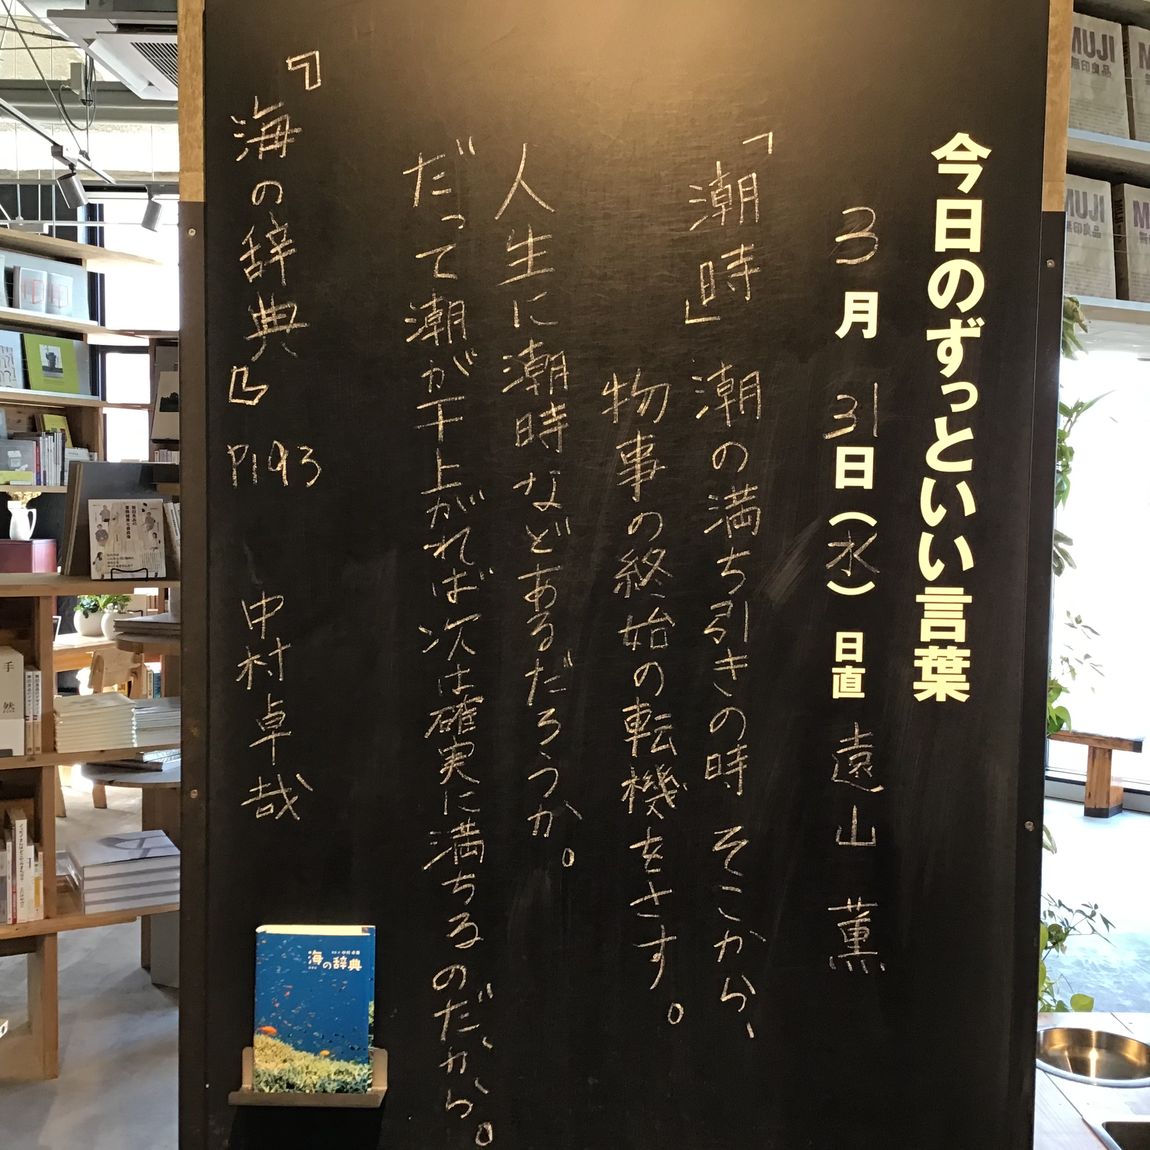 今日のずっといい言葉
3月31日(水) 日直 遠山 薫
「潮時」潮の満ち引きの時 そこから、
物事の終始の転機をさす。
人生に潮時などあるだろうか。
だって潮が干上がれば次は確実に満ちるのだから。
『海の辞典』 P193 中村卓哉
海の辞典
MUJI
無印良品
MUJI
無印良品